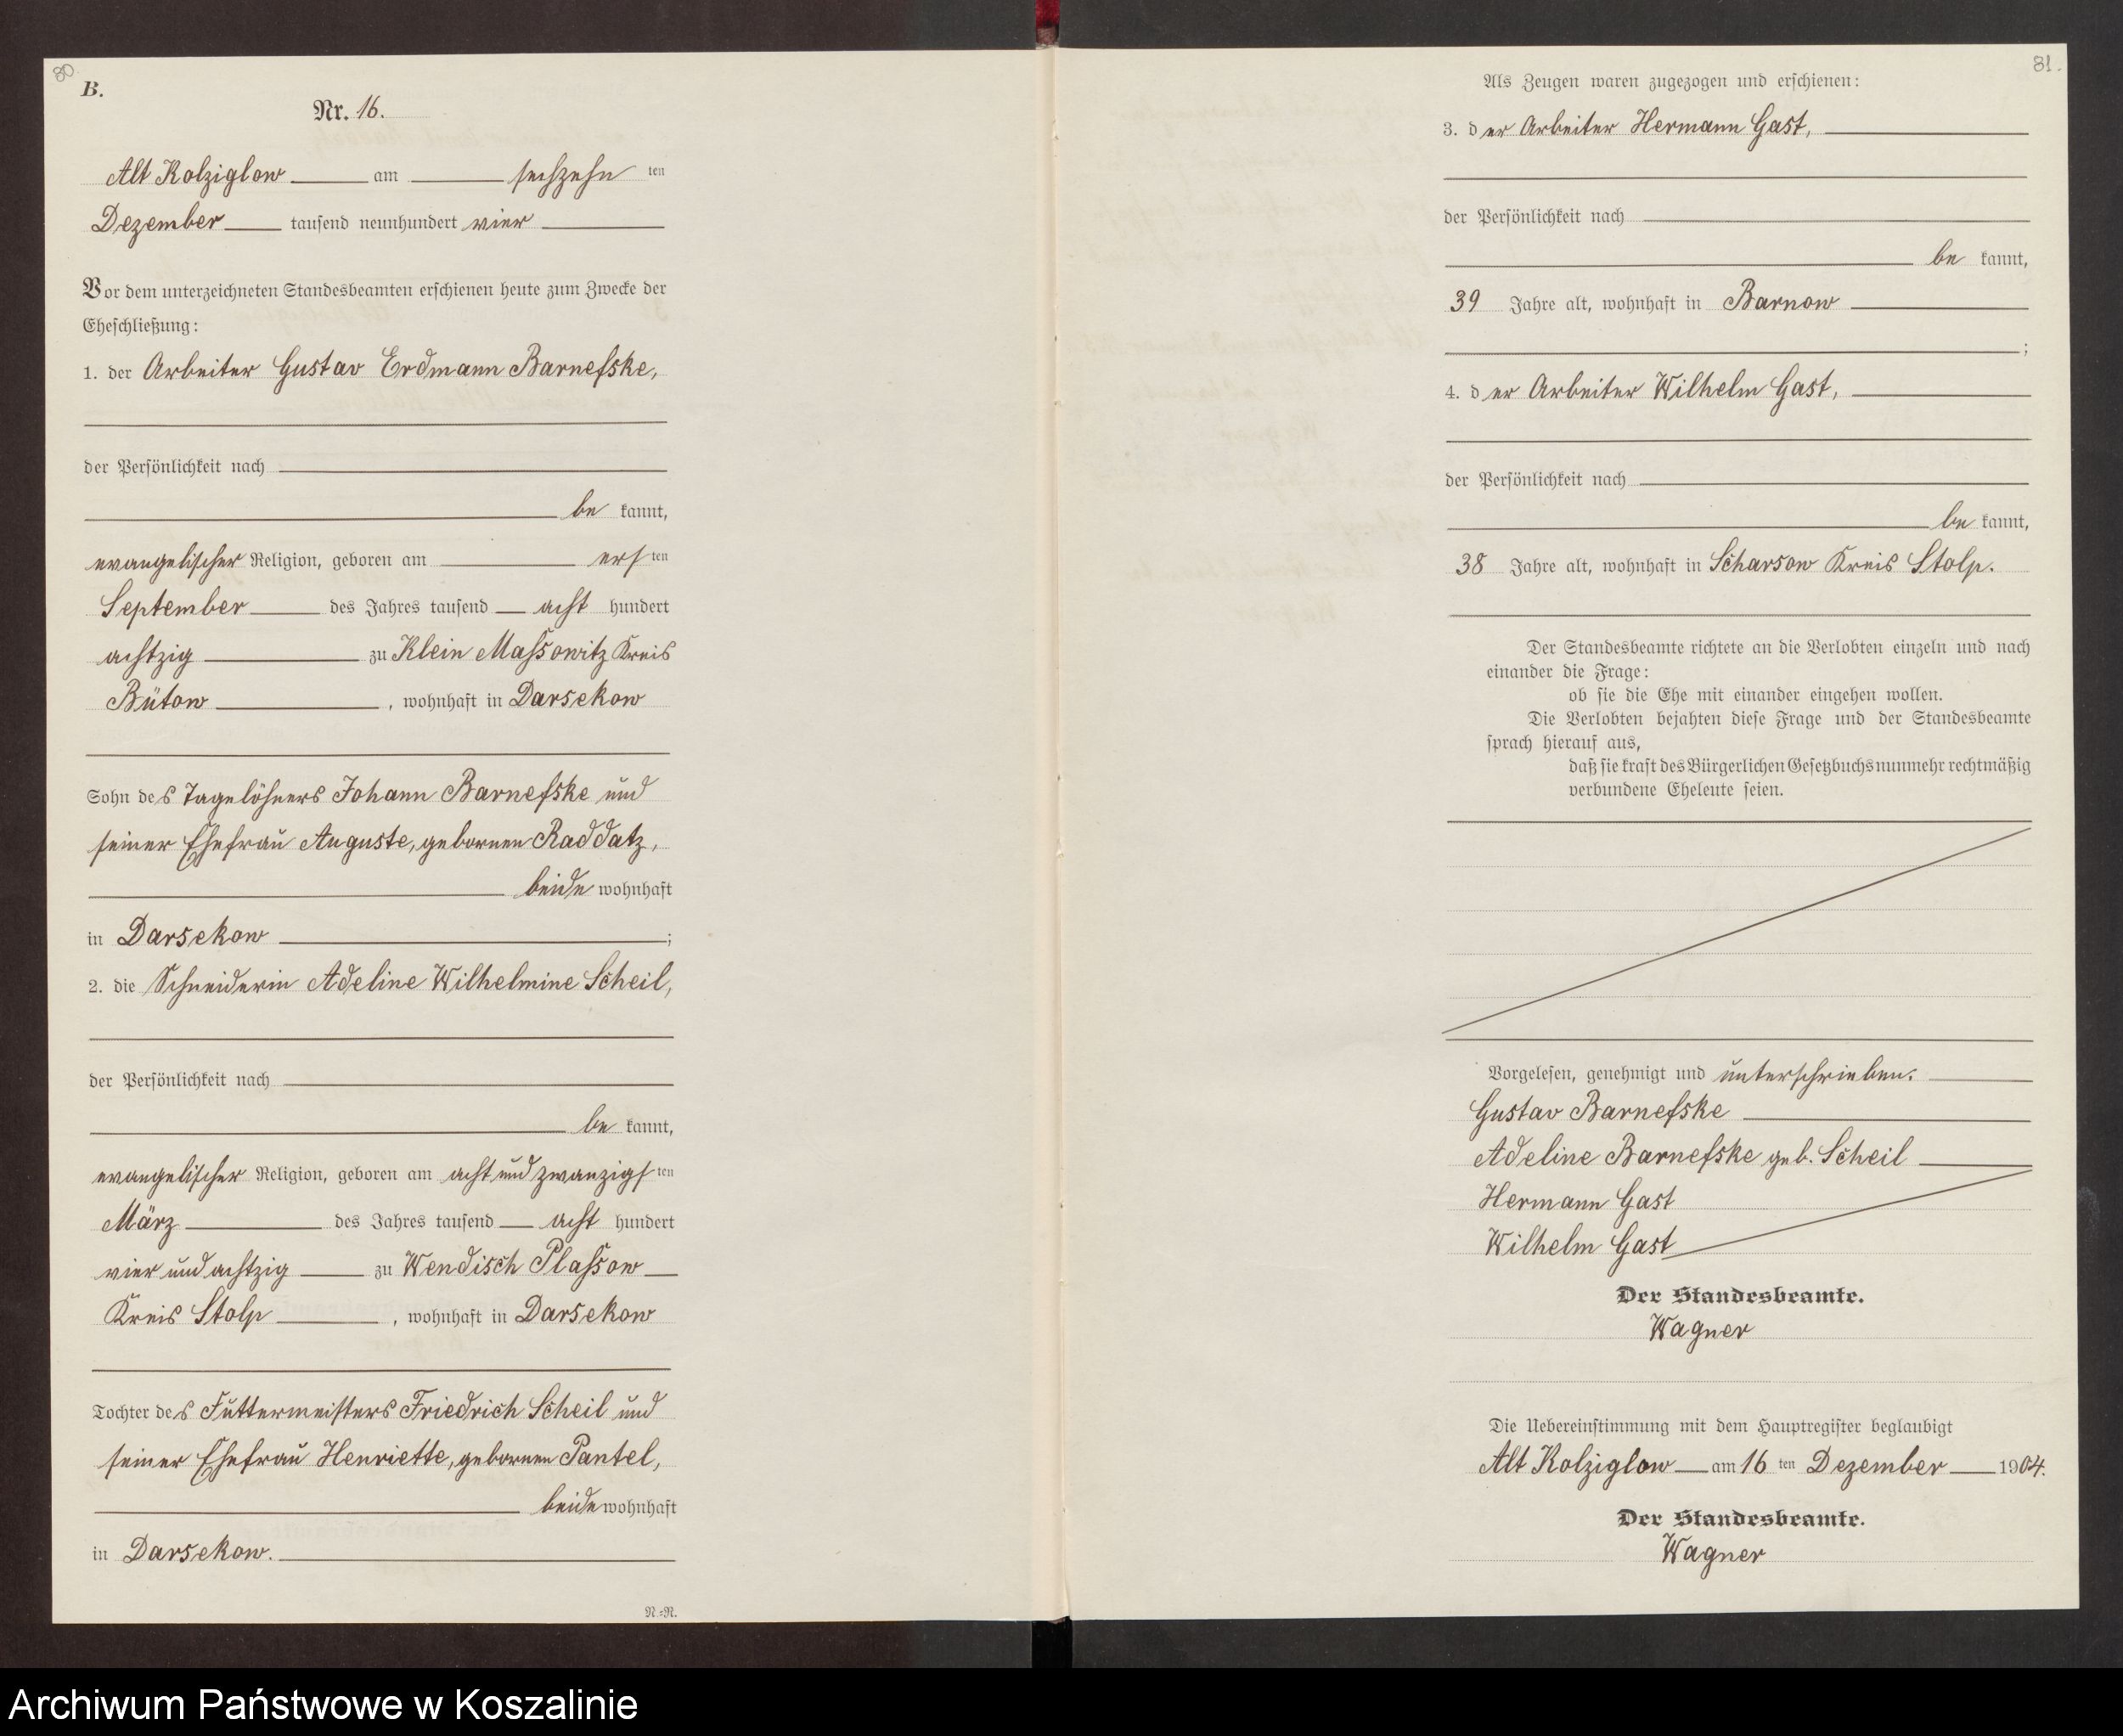 80.
B.
Nr. 16.
Alt Kolziglow am sechzehn ten
Dezember tausend neunhundert vier
Vor dem unterzeichneten Standesbeamten erschienen heute zum Zwecke der
Eheschließung:
1. der Arbeiter Gustav Erdmann Barnefske,
der Persönlichkeit nach
be kannt,
evangelischer Religion, geboren am ersten
September des Jahres tausend acht hundert
achtzig zu Klein Massowitz Kreis
Bütow, wohnhaft in Darsekow
Sohn des Tagelöhners Johann Barnefske und
seiner Ehefrau Auguste, gebornen Raddatz,
beide wohnhaft
in Darsekow ;
2. die Schneiderin Adeline Wilhelmine Scheil,
der Persönlichkeit nach
be kannt,
evangelischer Religion, geboren am acht und zwanzigsten
März des Jahres tausend acht hundert
vier und achtzig zu Wendisch Plassow
Kreis Stolp, wohnhaft in Darsekow
Tochter des Futtermeisters Friedrich Scheil und
seiner Ehefrau Henriette, gebornen Pantel,
beide wohnhaft
in Darsekow.
N.=N.
81.
Als Zeugen waren zugezogen und erschienen:
3. der Arbeiter Hermann Gast,
der Persönlichkeit nach
be kannt,
39 Jahre alt, wohnhaft in Barnow
;
4. der Arbeiter Wilhelm Gast,
der Persönlichkeit nach
be kannt,
38 Jahre alt, wohnhaft in Scharsow Kreis Stolp.
Der Standesbeamte richtete an die Verlobten einzeln und nach
einander die Frage:
ob sie die Ehe mit einander eingehen wollen.
Die Verlobten bejahten diese Frage und der Standesbeamte
sprach hierauf aus,
daß sie kraft des Bürgerlichen Gesetzbuchs nunmehr rechtmäßig
verbundene Eheleute seien.
Vorgelesen, genehmigt und unterschrieben.
Gustav Barnefske
Adeline Barnefske geb. Scheil
Hermann Gast
Wilhelm Gast
Der Standesbeamte.
Wagner
Die Uebereinstimmung mit dem Hauptregister beglaubigt
Alt Kolziglow am 16 ten Dezember 1904.
Der Standesbeamte.
Wagner
Archiwum Państwowe w Koszalinie